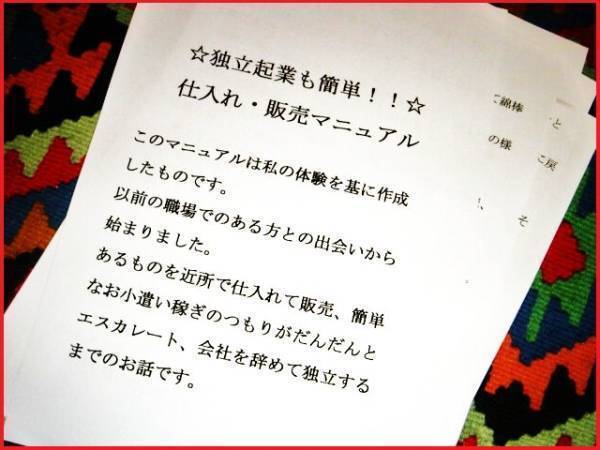 ☆独立起業も簡単！！☆
仕入れ・販売マニュアル
このマニュアルは私の体験を基に作成
したものです。
以前の職場でのある方との出会いから
始まりました。
あるものを近所で仕入れて販売、簡単
なお小遣い稼ぎのつもりがだんだんと
エスカレート、会社を辞めて独立する
までのお話です。
綿棒
と
の様
に戻
！、
そ